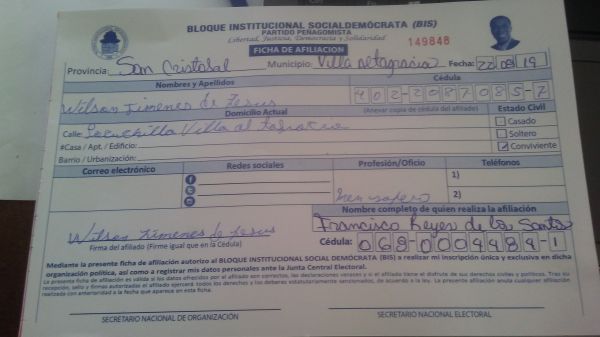 BLOQUE INSTITUCIONAL SOCIALDEMÓCRATA (BIS)
PARTIDO PEÑAGOMISTA
Libertad, Justicia, Democracia y Solidaridad
FICHA DE AFILIACION
149848
Provincia: San Cristobal Municipio: Villa Altagracia Fecha: 22/08/19
Nombres y Apellidos
Cédula
Wilson Jimenes de Jesus
402-2087085-7
Domicilio Actual
(Anexar copia de cédula del afiliado)
Estado Civil
Calle:
#Casa / Apt. / Edificio:
Barrio / Urbanización:
Casado
Soltero
Conviviente
Correo electrónico
Redes sociales
Profesión/Oficio
Teléfonos
1)
2)
Nombre completo de quien realiza la afiliación
Francisco Reyes de los Santos
Wilson Jimenes de Jesus
Firma del afiliado (Firme igual que en la Cédula)
Cédula: 068-0009484-1
Mediante la presente ficha de afiliación autorizo al BLOQUE INSTITUCIONAL SOCIAL DEMÓCRATA (BIS) a realizar mi inscripción única y exclusiva en dicha
organización política, así como a registrar mis datos personales ante la Junta Central Electoral.
La presente ficha de afiliación es válida si los datos ofrecidos por el afiliado son correctos, las declaraciones veraces y si el afiliado tiene el disfrute de sus derechos civiles y políticos. Tras su
recepción, sello y firmas autorizadas el afiliado ejercerá todos los derechos y los deberes estatutariamente sancionados, de acuerdo a la ley. La presente afiliación anula cualquier afiliación
realizada con anterioridad a la fecha que aparece en esta ficha.
SECRETARIO NACIONAL DE ORGANIZACIÓN
SECRETARIO NACIONAL ELECTORAL